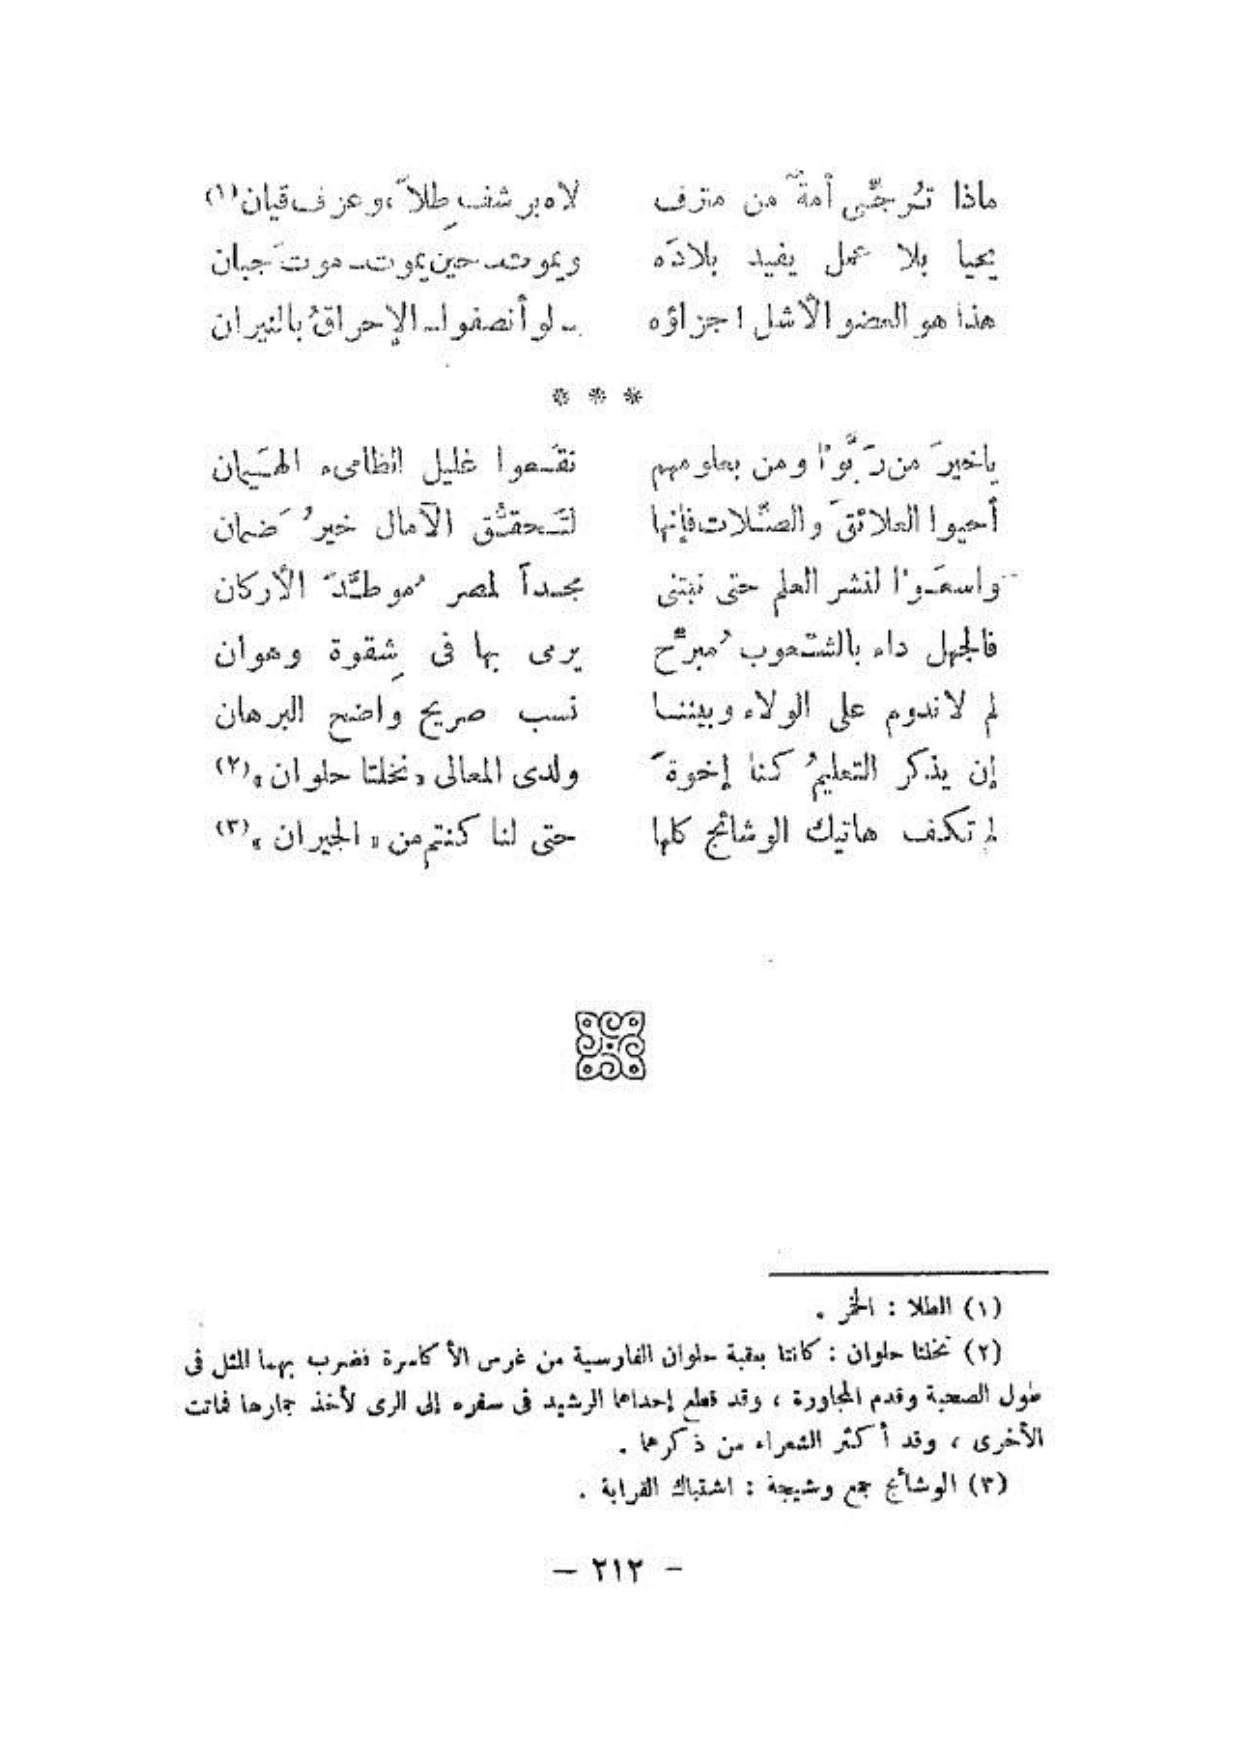 ماذا تُرجّى أمةٌ من مترف لاه برشف طِلاً، وعزف قيان (١)
يحيا بلا عمل يفيد بلادَه ويموت ـ حين يموت ـ موتَ جبان
هذا هو العضو الأشل! جزاؤه ـ لو أنصفوا ـ الإحراقُ بالنيران
* * *
ياخيرَ من رَبَّوْا ومن بعلومهم نقَعوا غليل الظامىء الهَيمان
أحيوا العلائقَ والصِّلات فإنها لتَحقُّق الآمال خيرُ ضَمان
واسعَوْا لنشر العلم حتى نبتنى مجداً لمصر مُوطَّدَ الأركان
فالجهل داء بالشعوب مُبرِّح يرمى بها فى شِقوة وهوان
لم لاندوم على الولاء وبيننا نسب صريح واضح البرهان
إن يذكر التعليمُ كنا إخوةً ولدى المعالى «نخلتا حلوان» (٢)
لم تكف هاتيك الوشائج كلها حتى لنا كنتم من «الجيران» (٣)
(١) الطلا : الخمر .
(٢) نخلتا حلوان : كانتا بعقبة حلوان الفارسية من غرس الأكاسرة فضرب بهما المثل فى
طول الصحبة وقدم المجاورة ، وقد قطع إحداهما الرشيد فى سفره إلى الرى لأخذ جمارها فماتت
الأخرى ، وقد أكثر الشعراء من ذكرهما .
(٣) الوشائج جمع وشيجة : اشتباك القرابة .
— ٢١٢ —